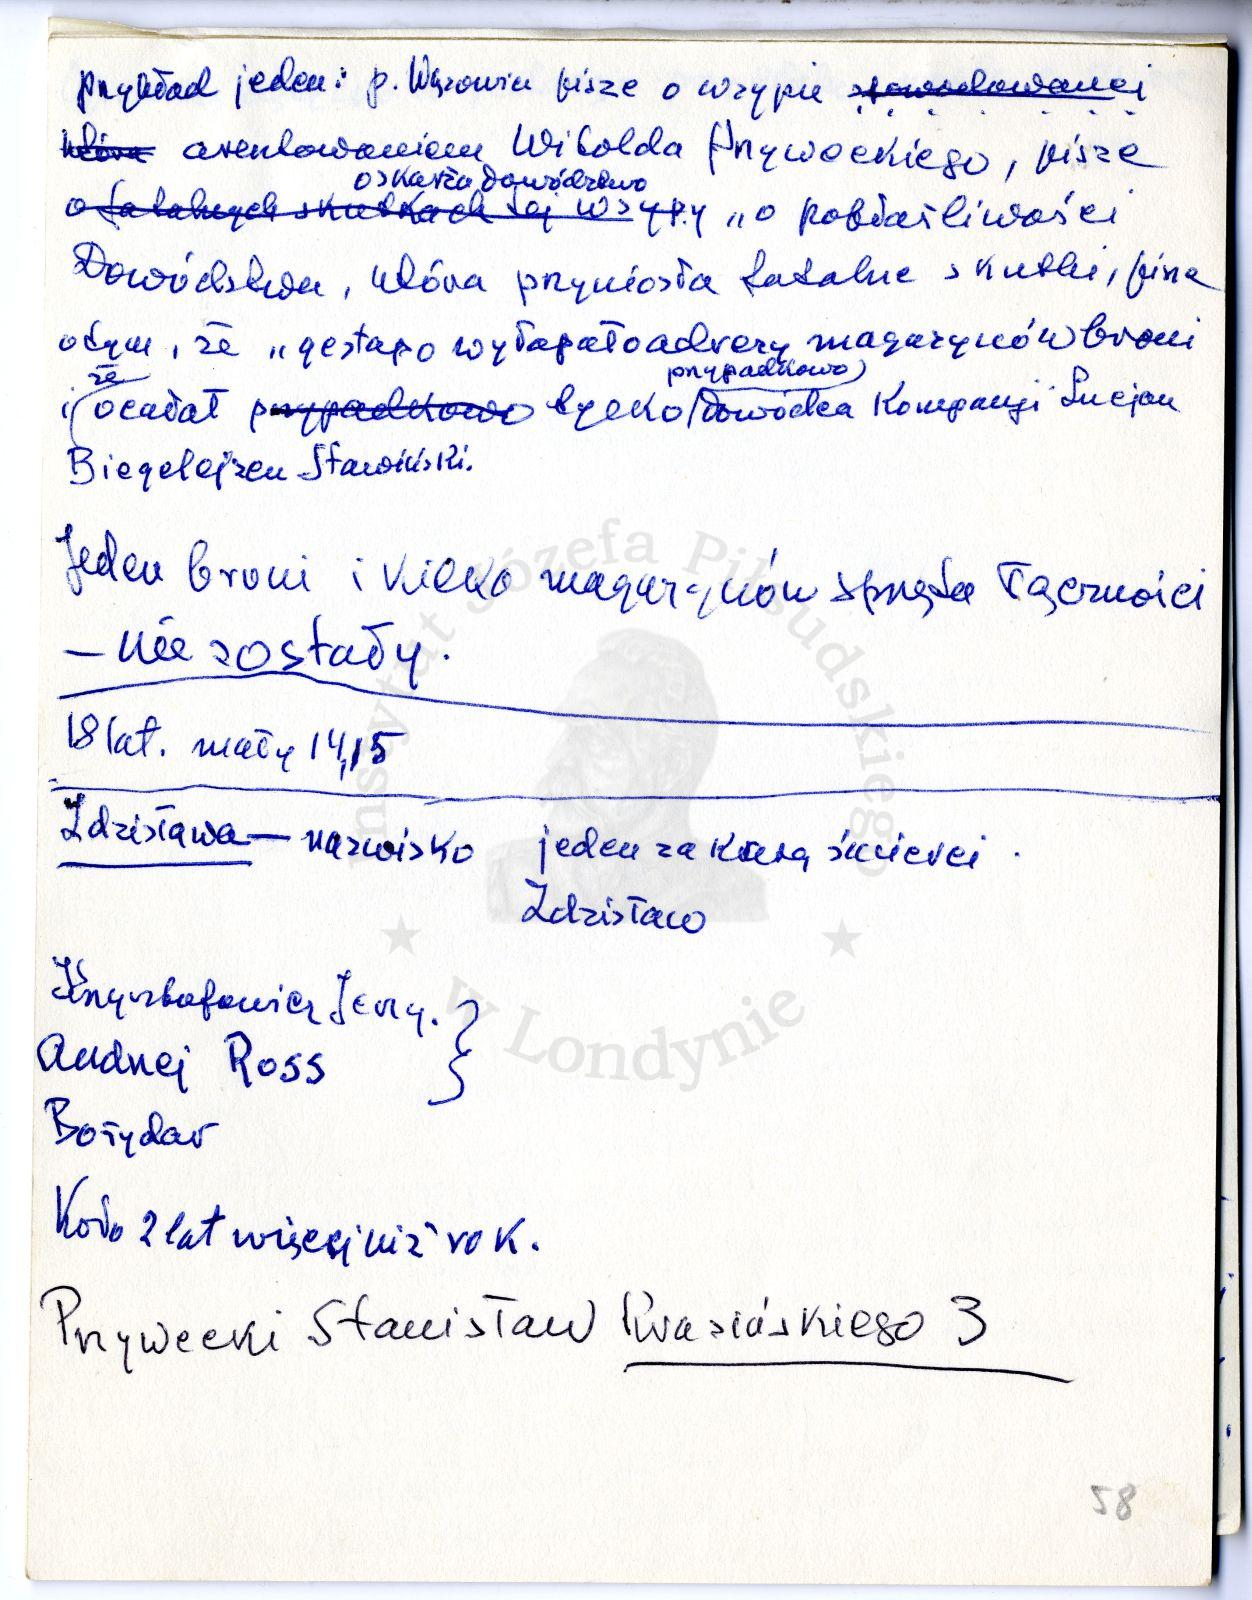 przykład jeden: p. Wąsowicz pisze o wsypie spowodowanej
która aresztowaniem Witolda Przyweckiego, pisze
oskarża Dowództwo
o fatalnych skutkach tej wsypy „o pobłażliwości
Dowództwa, która przyniosła fatalne skutki, pisze
o tym, że „gestapo wyłapało adresy magazynów broni
że przypadkowo
i ocalał przypadkowo tylko Dowódca Kompanji Lucjan
Biegelejzen Stawiński.
Jeden broni i kilka magazynów sprzętu łączności
– nie zostały.
18 lat. mały 14,15
Zdzisława — nazwisko jeden za karą śmierci.
Zdzisław
Krzysztofowicz Jerzy.
Andrzej Ross
Bożydar
Koło 2 lat więcej niż rok.
Przywecki Stanisław Krasińskiego 3
58
Instytut Józefa Piłsudskiego
w Londynie